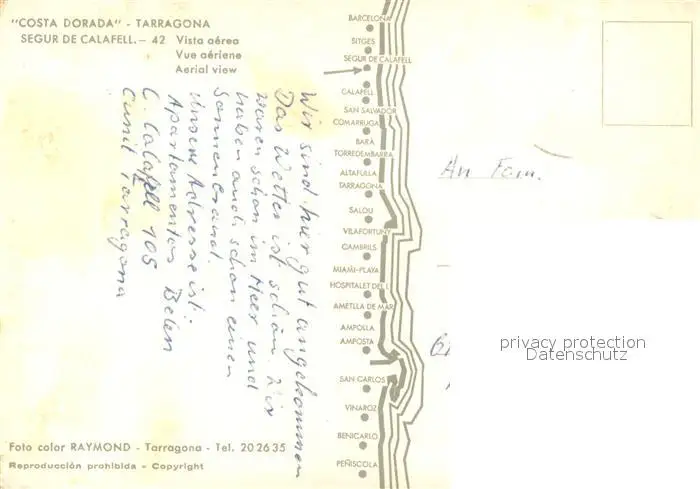 "COSTA DORADA" - TARRAGONA
SEGUR DE CALAFELL. - 42 Vista aérea
Vue aériene
Aerial view
Wir sind hier gut angekommen
Das Wetter ist schön. Wir
waren schon im Meer und
haben auch schon einen
Sonnenbrand.
Unsere Adresse ist:
Apartamentos Belen
C. Calafell 105
Cunit Tarragona
Foto color RAYMOND - Tarragona - Tel. 202635
Reproducción prohibida - Copyright
BARCELONA
SITGES
SEGUR DE CALAFELL
CALAFELL
SAN SALVADOR
COMARRUGA
BARÁ
TORREDEMBARRA
ALTAFULLA
TARRAGONA
SALOU
VILAFORTUNY
CAMBRILS
MIAMI-PLAYA
HOSPITALET DEL I.
AMETLLA DE MAR
AMPOLLA
AMPOSTA
SAN CARLOS
VINAROZ
BENICARLO
PEÑISCOLA
An Fam.
privacy protection
Datenschutz